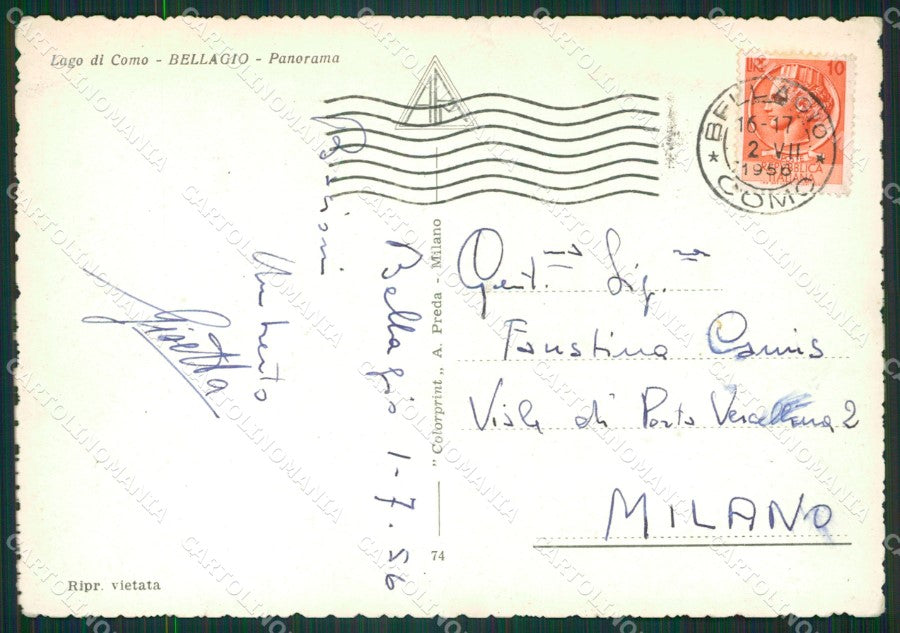 Lago di Como - BELLAGIO - Panorama
LIRE 10
REPUBBLICA
ITALIANA
BELLAGIO
16-17
2 VII
1956
COMO
Bellagio 1-7.56
Umberto
Gisetta
"Colorprint" A. Preda - Milano
74
Gent. Sig.
Faustina Camis
Viale di Porta Vercellina 2
MILANO
Ripr. vietata
CARTOLINOMANIA